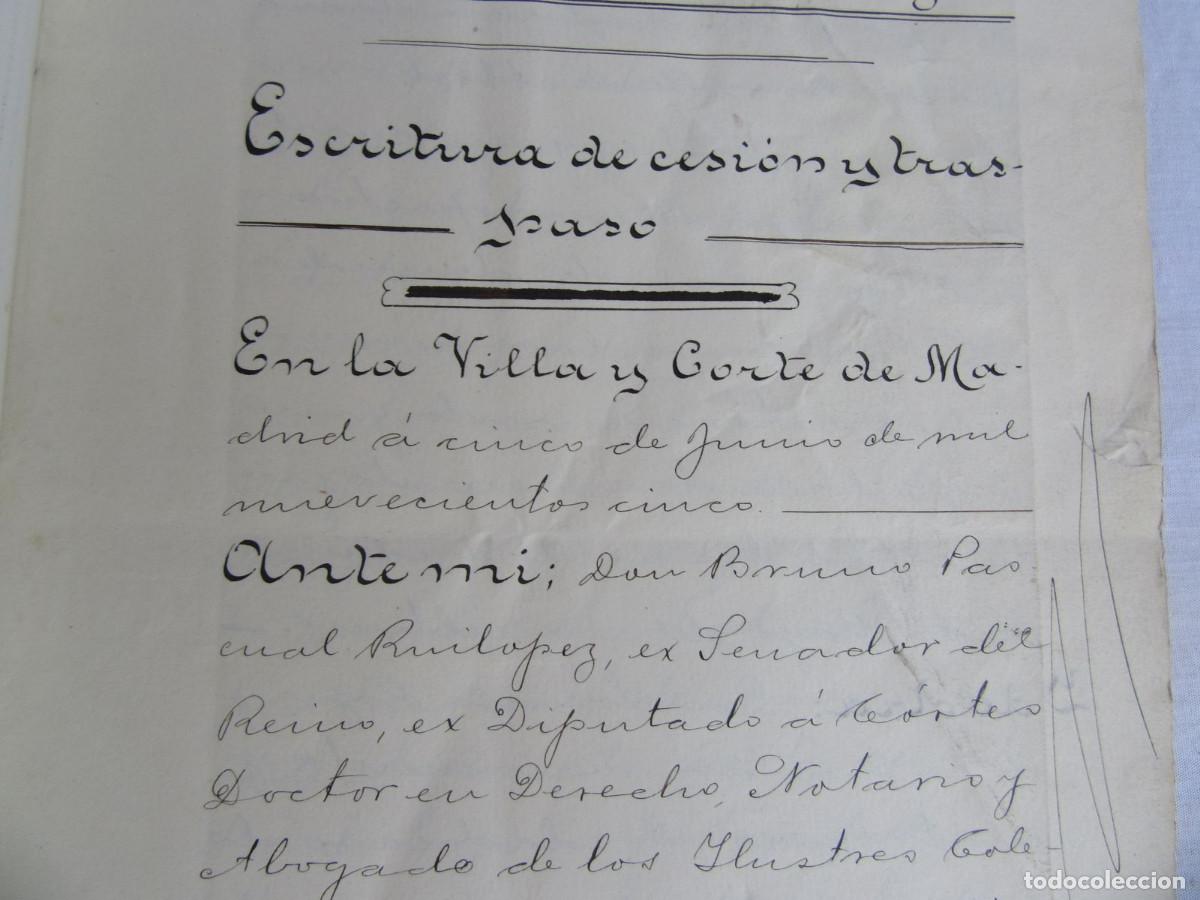 Escritura de cesión y tras-
paso
En la Villa y Corte de Ma-
drid á cinco de Junio de mil
nuevecientos cinco.
Ante mi; Don Bruno Pas-
cual Ruilopez, ex Senador del
Reino, ex Diputado á Córtes
Doctor en Derecho, Notario y
Abogado de los Ilustres Cole-
todocoleccion